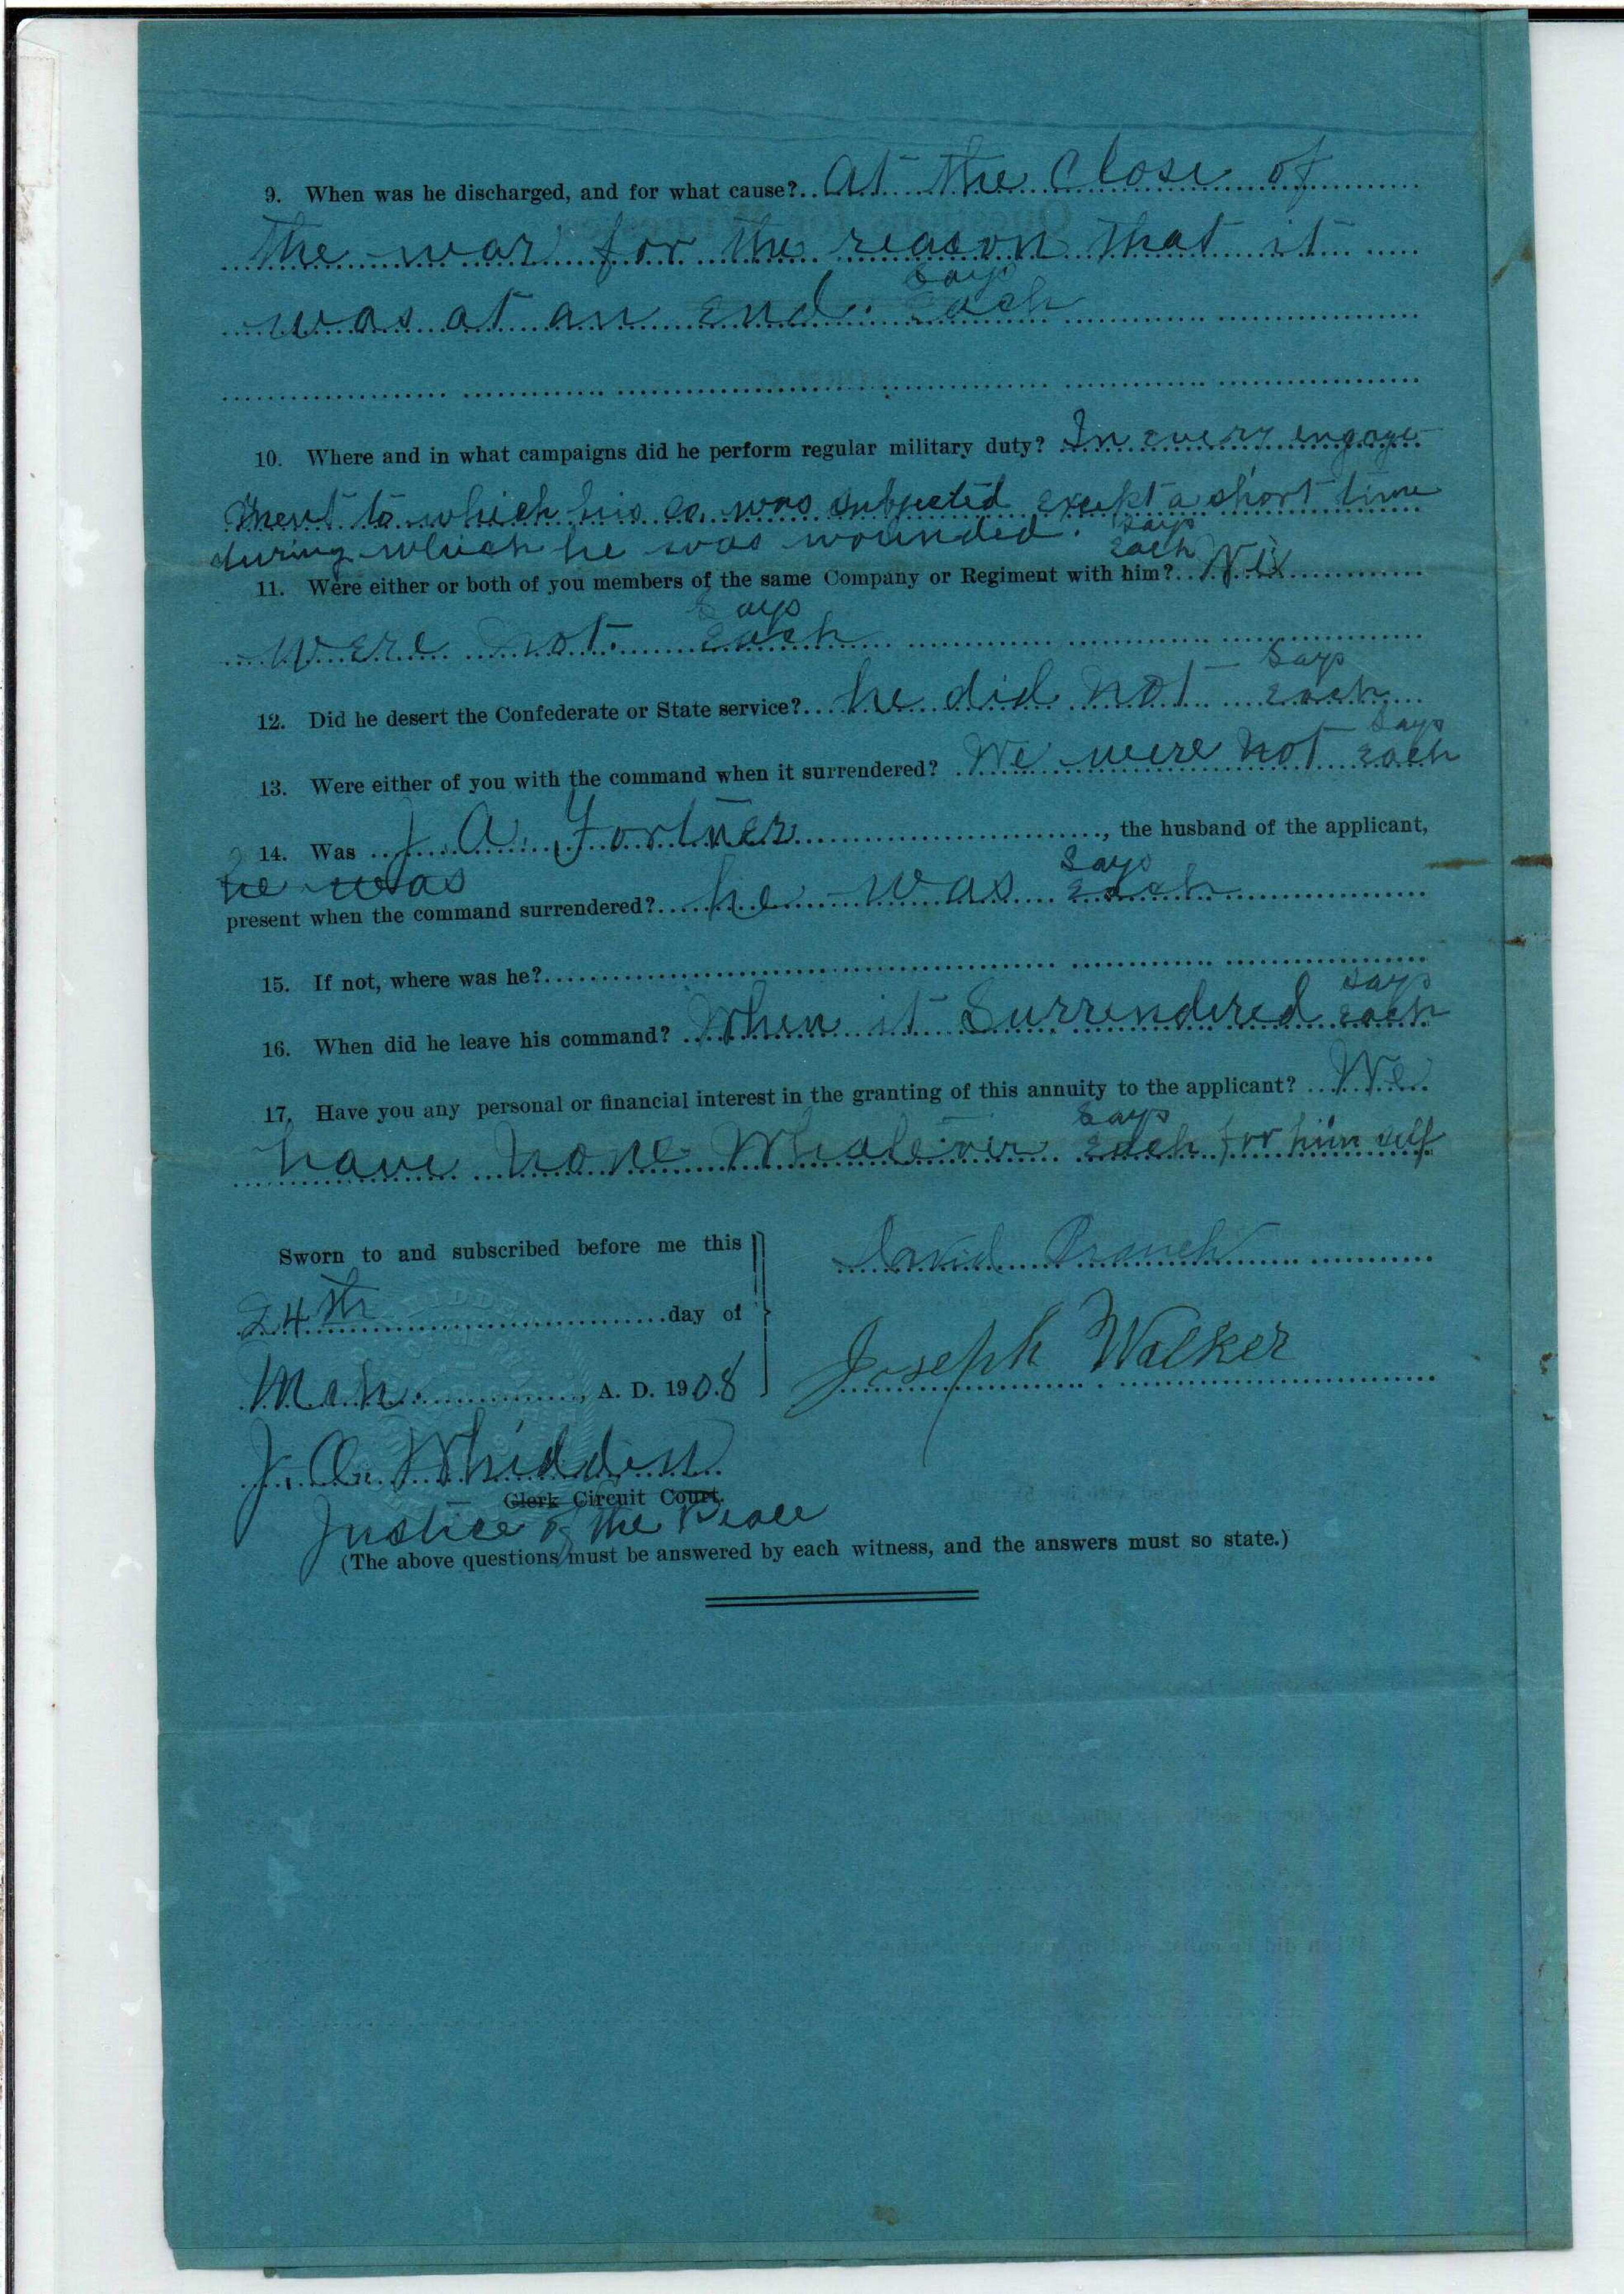 9. When was he discharged, and for what cause? At the Close of
the war for the reason that it
Says
was at an end. Each
10. Where and in what campaigns did he perform regular military duty? In every engage
ment to which his co. was subjected except a short time
Says
during which he was wounded. Each
11. Were either or both of you members of the same Company or Regiment with him? We
Says
were not. Each
Says
12. Did he desert the Confederate or State service? he did not Each
Says
13. Were either of you with the command when it surrendered? We were not Each
14. Was J. A. Fortner, the husband of the applicant,
he was
Says
present when the command surrendered? he was Each
15. If not, where was he?
Says
16. When did he leave his command? When it Surrendered Each
17. Have you any personal or financial interest in the granting of this annuity to the applicant? We
Says
have none Whatever Each for him self
Sworn to and subscribed before me this
David Branch
24th day of
Joseph Walker
Mch. , A. D. 1908
J. A. Whidden
Clerk Circuit Court.
Justice of the Peace
(The above questions must be answered by each witness, and the answers must so state.)